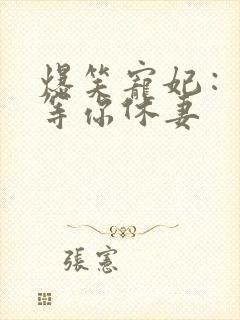 爆笑寵妃:
等你休妻
張憲